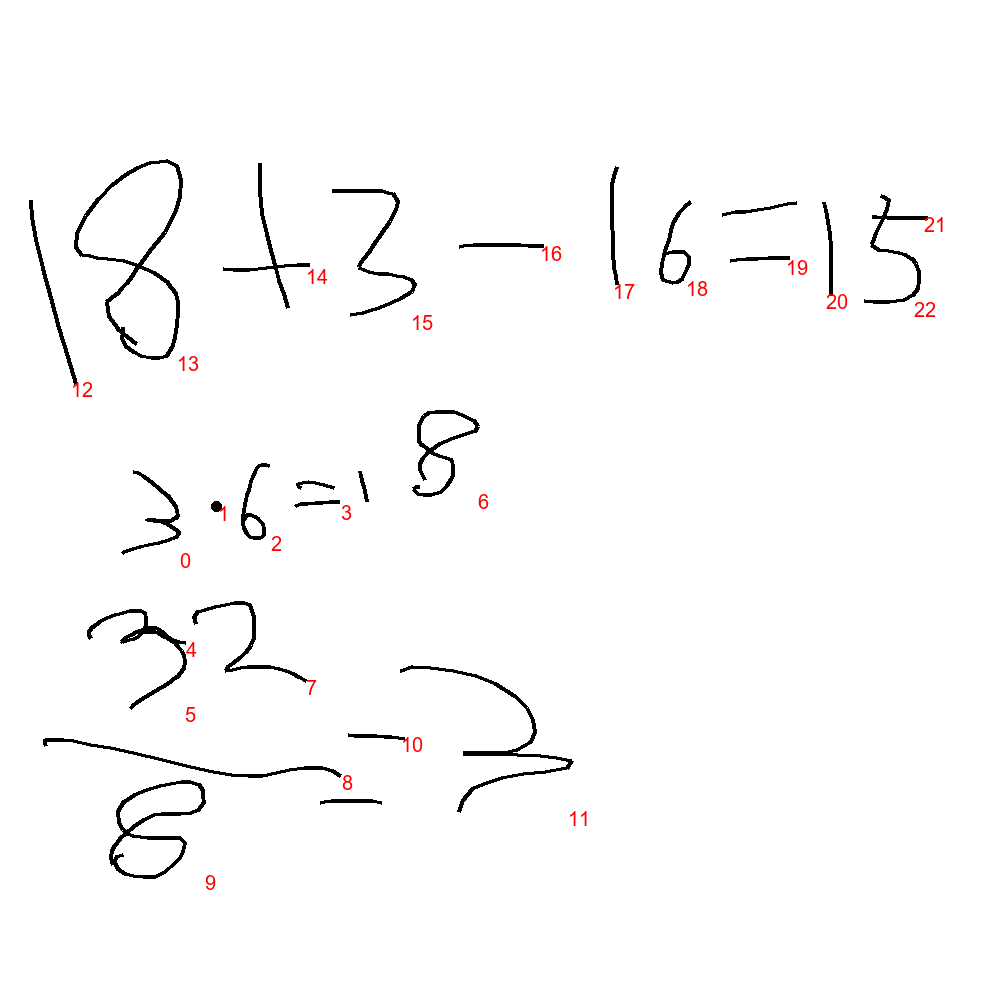 18+3-16=15
12 13 14 15 16 17 18 19 20 21 22
3·6=18
0 1 2 3 6
32/8=3
4 5 7 8 9 10 11